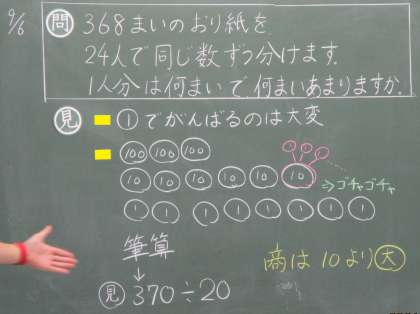 9/6
問 368まいのおり紙を
24人で同じ数ずつ分けます.
1人分は何まいで何まいあまりますか.
見 ①でがんばるのは大変
100 100 100
10 10 10 10 10 10 ⇒ゴチャゴチャ
1 1 1 1 1 1 1 1
筆算
↓
商は10より大
見 370÷20